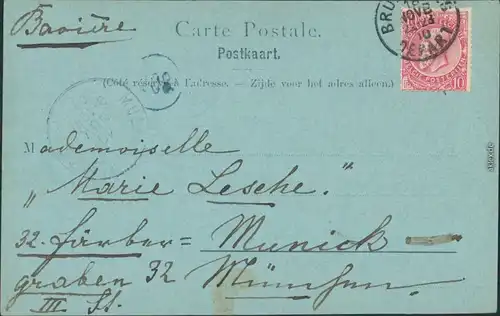 Bavière
Carte Postale.
Postkaart.
(Côté réservé à l'adresse. — Zijde voor het adres alleen.)
Mademoiselle
„Marie Lesche."
32. Färber= Munick —
graben 32 München.
III St.
BRU
DEPART
10